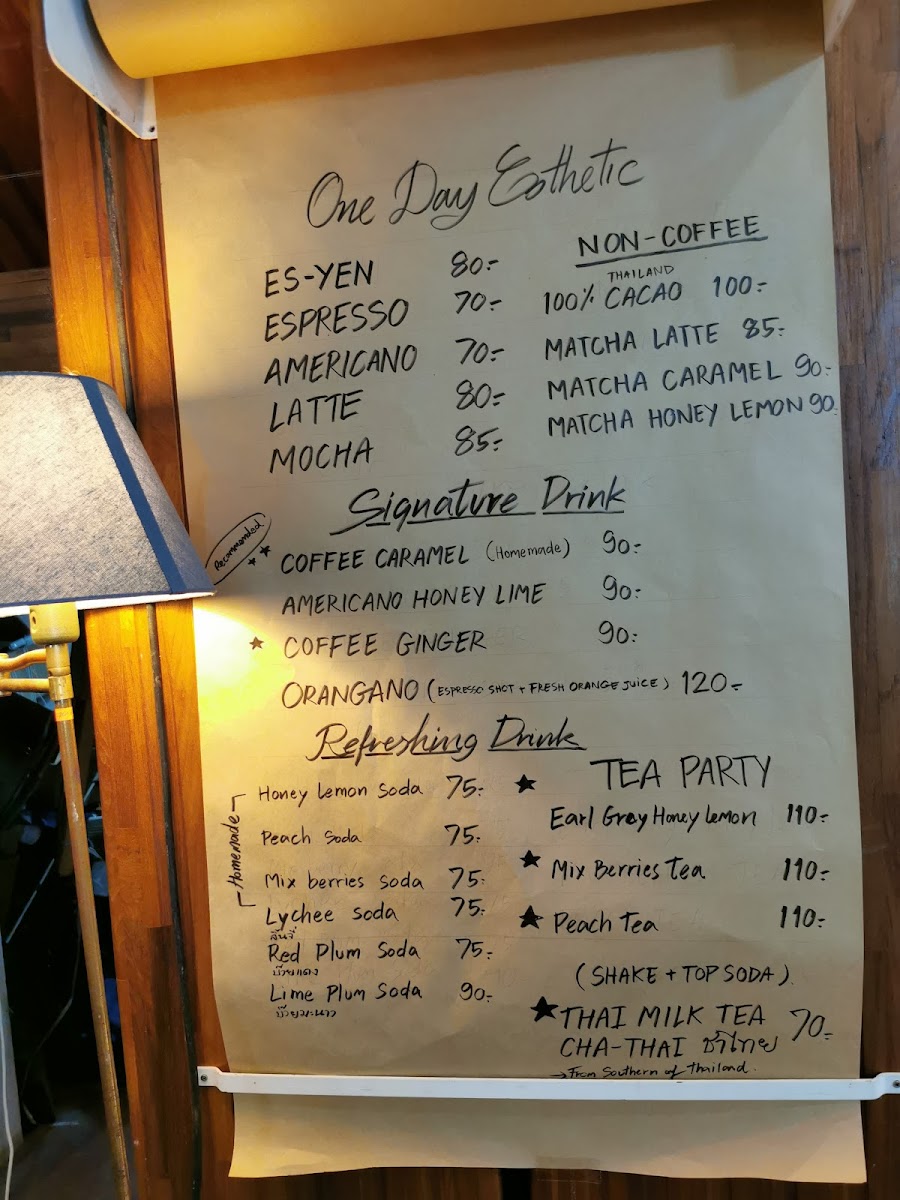 One Day Esthetic
ES-YEN 80.-
ESPRESSO 70.-
AMERICANO 70.-
LATTE 80.-
MOCHA 85.-
NON-COFFEE
THAILAND
100% CACAO 100.-
MATCHA LATTE 85.-
MATCHA CARAMEL 90.-
MATCHA HONEY LEMON 90.
Signature Drink
Recommended
COFFEE CARAMEL (Homemade) 90.-
AMERICANO HONEY LIME 90.-
COFFEE GINGER 90.-
ORANGANO (ESPRESSO SHOT + FRESH ORANGE JUICE) 120.-
Refreshing Drink
Homemade
Honey Lemon Soda 75.-
Peach Soda 75.-
Mix berries Soda 75.-
Lychee Soda 75.-
ลิ้นจี่
Red Plum Soda 75.-
บ๊วยแดง
Lime Plum Soda 90.-
บ๊วยมะนาว
TEA PARTY
Earl Grey Honey Lemon 110.-
Mix Berries Tea 110.-
Peach Tea 110.-
(SHAKE + TOP SODA)
THAI MILK TEA 70.-
CHA-THAI ชาไทย
→ From Southern of Thailand.